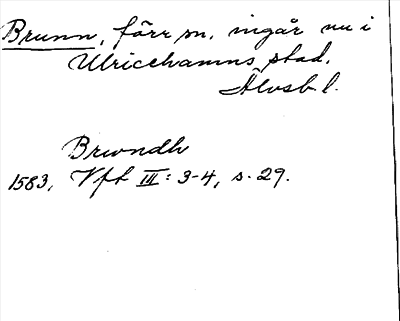 Brunn, förr sn, ingår nu i
Ulricehamns stad.
Älvsb l.
Brwndh
1583, Vfh III: 3-4, s. 29.